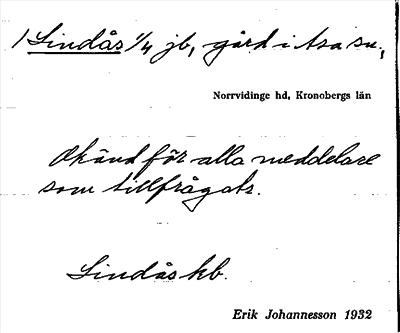 1 Lindås 1/4 jb, gård i Asa sn.,
Norrvidinge hd, Kronobergs län
Okänd för alla meddelare
som tillfrågats.
Lindås kb.
Erik Johannesson 1932